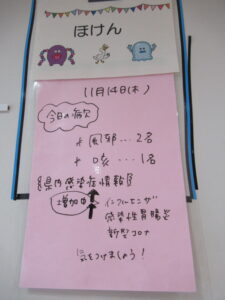 ほけん
11月14日(木)
今日の病欠
風邪…2名
咳…1名
県内感染症情報
増加中
インフルエンザ
感染性胃腸炎
新型コロナ
気をつけましょう!